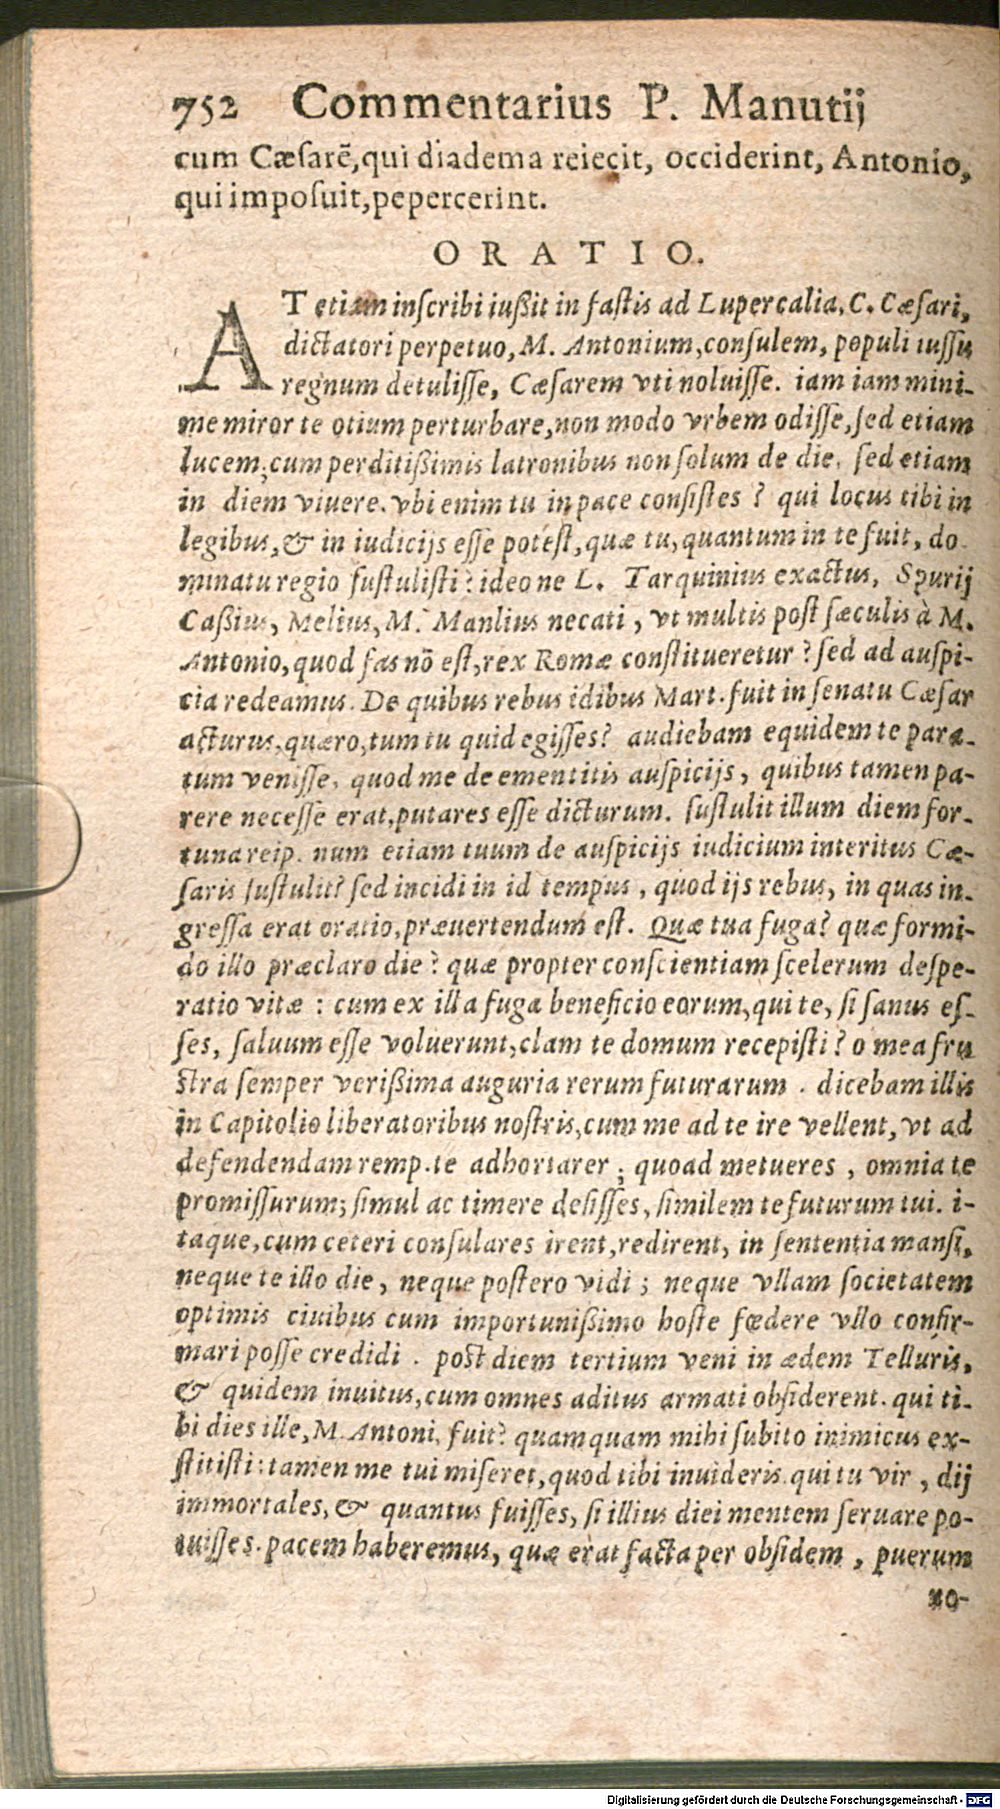 752 Commentarius P. Manutij
cum Cæſarē, qui diadema reiecit, occiderint, Antonio,
qui impoſuit, pepercerint.
ORATIO.
AT etiam inſcribi iußit in faſtis ad Lupercalia, C. Cæſari,
dictatori perpetuo, M. Antonium, conſulem, populi iuſſu
regnum detuliſſe, Cæſarem vti noluiſſe. iam iam mini-
me miror te otium perturbare, non modo vrbem odiſſe, ſed etiam
lucem; cum perditißimis latronibus non ſolum de die, ſed etiam
in diem viuere. vbi enim tu in pace conſiſtes? qui locus tibi in
legibus, & in iudicijs eſſe poteſt, quæ tu, quantum in te fuit, do
minatu regio ſuſtuliſti? ideo ne L. Tarquinius exactus, Spurij
Caßius, Melius, M. Manlius necati, vt multis poſt ſæculis à M.
Antonio, quod fas nō eſt, rex Romæ conſtitueretur? ſed ad auſpi-
cia redeamus. De quibus rebus idibus Mart. fuit in ſenatu Cæſar
acturus, quæro, tum tu quid egiſſes? audiebam equidem te para-
tum veniſſe, quod me de ementitis auſpicijs, quibus tamen pa-
rere neceſſe erat, putares eſſe dicturum. ſuſtulit illum diem for-
tuna reip. num etiam tuum de auſpicijs iudicium interitus Cæ-
ſaris ſuſtulit? ſed incidi in id tempus, quod ijs rebus, in quas in-
greſſa erat oratio, præuertendum eſt. Quæ tua fuga? quæ formi-
do illo præclaro die? quæ propter conſcientiam ſcelerum deſpe-
ratio vitæ: cum ex illa fuga beneficio eorum, qui te, ſi ſanus eſ-
ſes, ſaluum eſſe voluerunt, clam te domum recepiſti? o mea fru
ſtra ſemper verißima auguria rerum futurarum. dicebam illis
in Capitolio liberatoribus noſtris, cum me ad te ire vellent, vt ad
defendendam remp. te adhortarer; quoad metueres, omnia te
promiſſurum; ſimul ac timere deſiſſes, ſimilem te futurum tui. i-
taque, cum ceteri conſulares irent, redirent, in ſententia manſi,
neque te illo die, neque poſtero vidi; neque vllam ſocietatem
optimis ciuibus cum importunißimo hoſte fœdere vllo confir-
mari poſſe credidi. poſt diem tertium veni in ædem Telluris,
& quidem inuitus, cum omnes aditus armati obſiderent. qui ti-
bi dies ille, M. Antoni, fuit? quamquam mihi ſubito inimicus ex-
ſtitiſti: tamen me tui miſeret, quod tibi inuideris. qui tu vir, dij
immortales, & quantus fuiſſes, ſi illius diei mentem ſeruare po-
tuiſſes. pacem haberemus, quæ erat facta per obſidem, puerum
no-
Digitalisierung gefördert durch die Deutsche Forschungsgemeinschaft - DFG